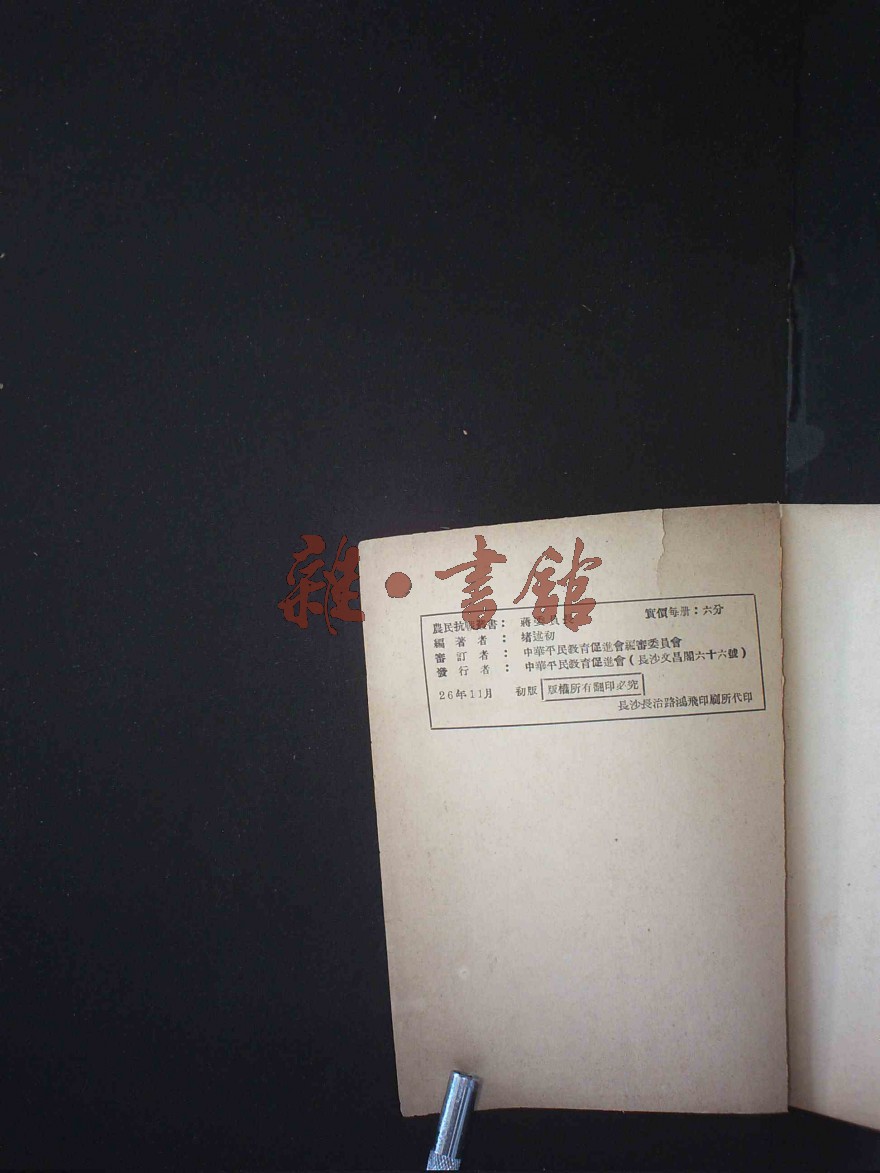 雜·書館
農民抗戰叢書： 蔣委員長 實價每册：六分
編著者： 堵述初
審訂者： 中華平民教育促進會編審委員會
發行者： 中華平民教育促進會（長沙文昌閣六十六號）
26年11月 初版 版權所有翻印必究
長沙長治路鴻飛印刷所代印